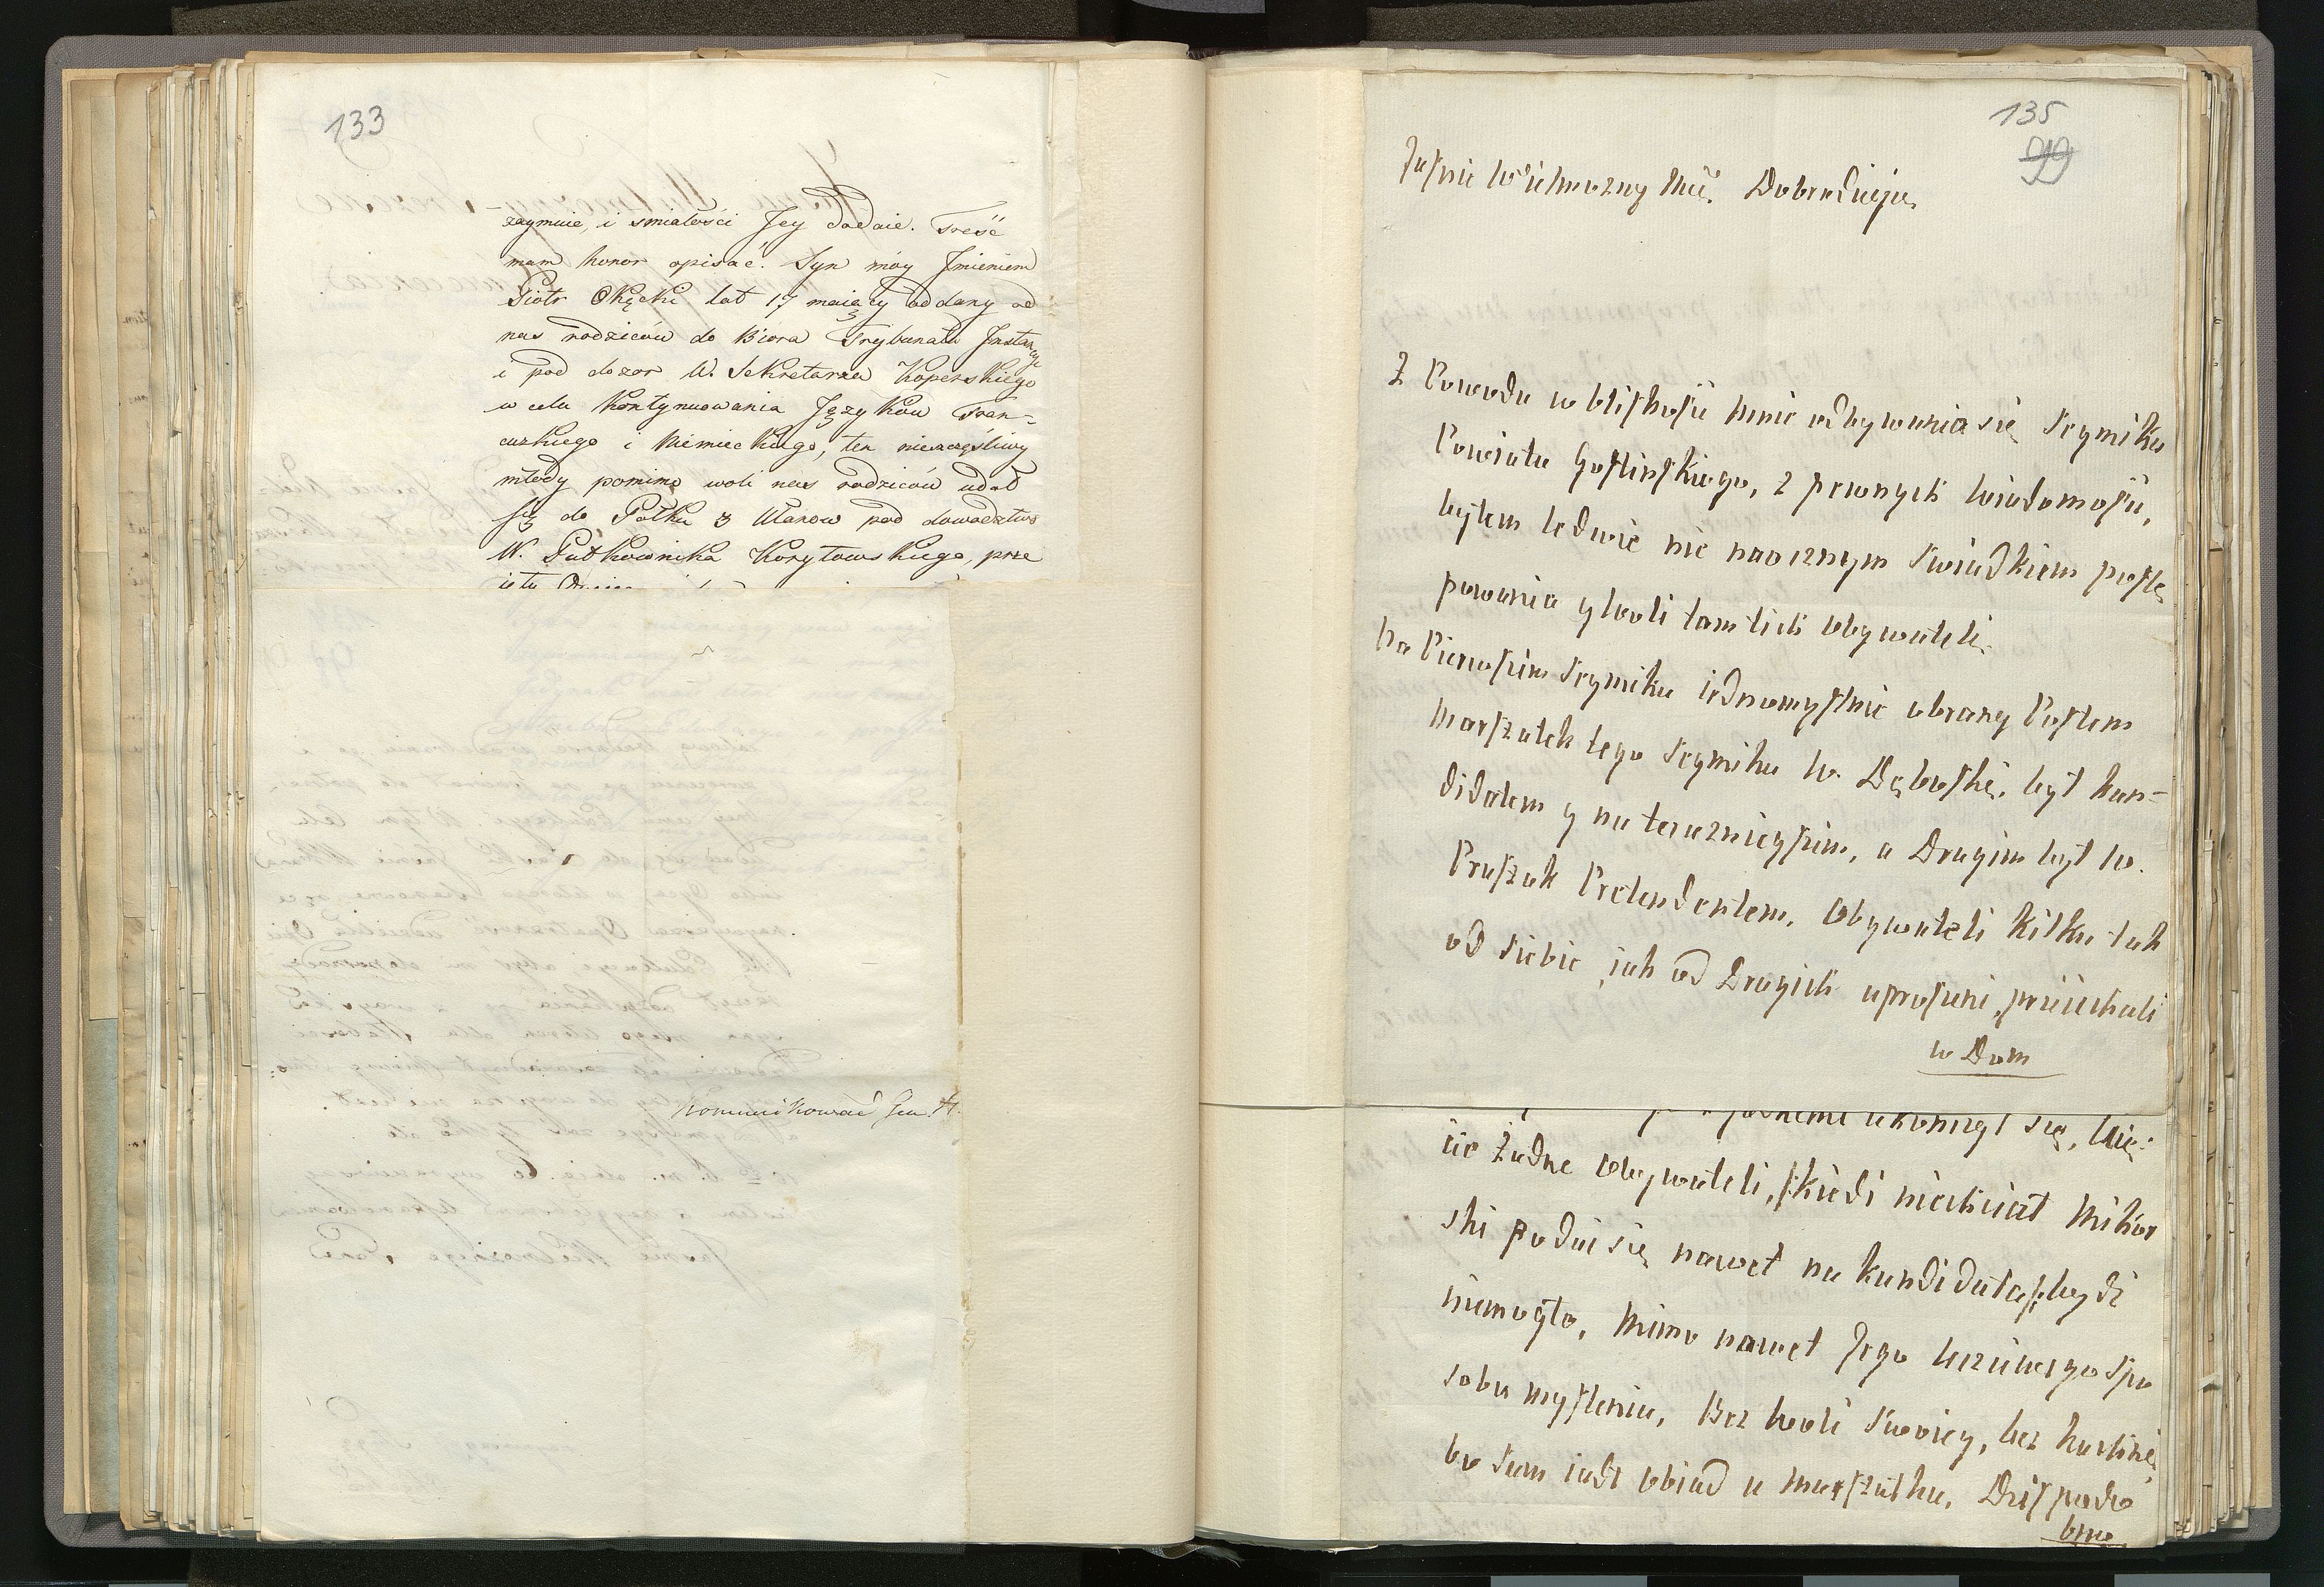 133
zaymuie, i smiałości Jey dodaie. Treść
mam honor opisać. Syn móy Jmieniem
Piotr Okęcki lat 17 maiący oddany od
nas rodziców do Biora Trybunału Jnstancyi
i pod dozor W. Sekretarza Koperskiego
w celu Kontynuowania Języków Fran=
cuzkiego i Niemieckiego, ten nieszczęśliwy
młody pomimo woli nas rodziców udał
się do Połku 3 Ułanow pod dowodztwo
W. Pułkownika Korytowskiego, prze
kommunikować Gen.
135
99
Jaśnie Wielmozny Mci. Dobrodzieju
Z Powodu w bliskości mnie odbywania się Seymiku
Powiatu Gostinskiego, z pewnych wiadomości,
byłem ledwie nie naocznym Swiadkiem postę
powania y woli tamtich Obywateli.
Na Pierwszim Seymiku iednomyslnie obrany Posłem
Marszałek tego Seymiku W. Dęboski, był kan=
didatem y na teraznieyszim, a Drugim był W.
Pruszak Pretendentem, Obywateli kilku tak
od siebie, iak od Drugich uproszeni, priiechali
w Dom
ukonczył się, Wię=
cie żadne Obywateli, skiedi niechciał Mikor
ski podać się nawet na kandidata, bydź
niemogło, Mimo nawet Jego spo
sobu myslenia, Bez woli Swoiey, bez
bo sam iadł obiad u Marszałka, Dzis podo
bno